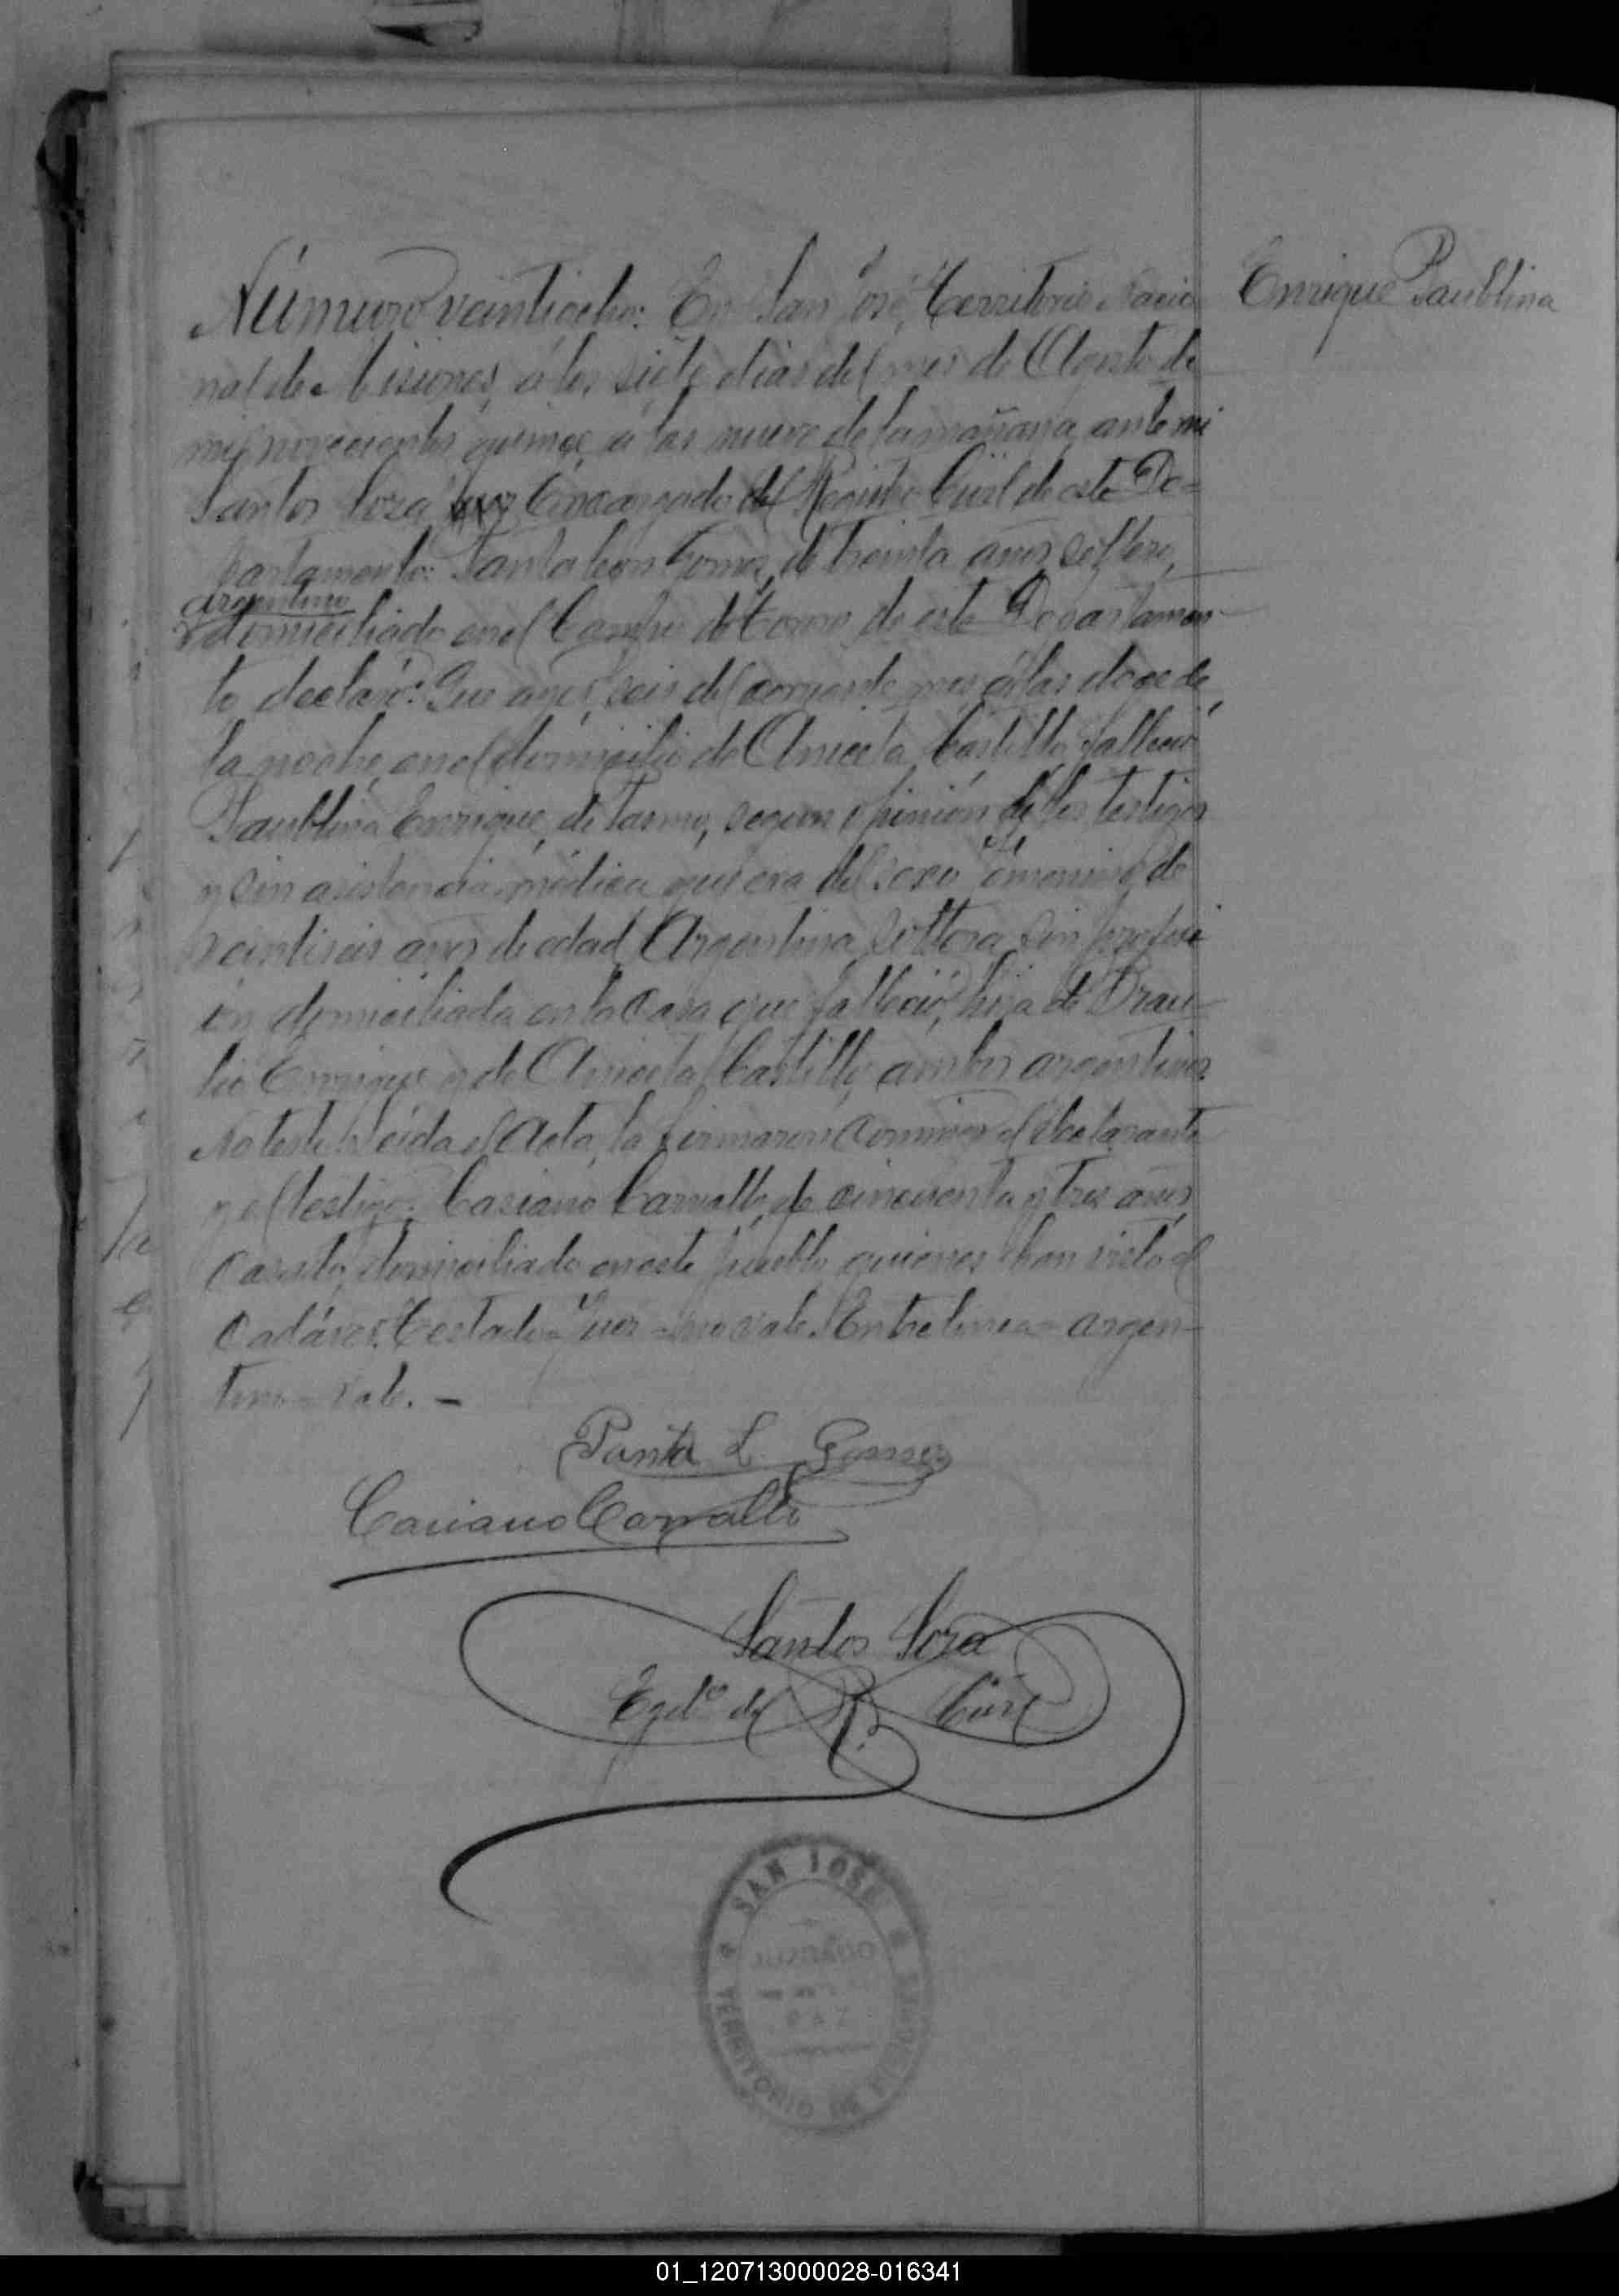 Número veintiocho: En San José, Territorio Nacio
nal de Misiones, á los siete dias del mes de Agosto de
mil novecientos quince á las nueve de la mañana, ante mi
Santos Soza Juez Encargado del Registro Civil de este De=
partamento: Pantaleon Gomez, de treinta años, soltero,
argentino
domiciliado en el de este Departamen
to declaró: Que ayer, seis del corriente mes, á las doce de
la noche en el domicilio de Aniceta Castillo, falleció
Paublina Enrique, de segun opinión de los testigos
y sin asistencia médica que era del sexo femenino, de
veintiseis años de edad, Argentina, soltera, sin profesi
ón domiciliada en la casa que falleció, hija de Brau-
lio Enrique y de Aniceta Castillo, ambos argentinos.
No testó. Leida el Acta, la firmaron conmigo el declarante
y el testigo: Casiano Carvallo, de cincuenta y tres años,
casado, domiciliado en este pueblo, quienes han visto el
cadáver. Testado=Juez=no vale. Entrelineas=argen-
tino=vale.-
Enrique Paublina
Panta L. Gomez
Casiano Carvallo
Santos Soza
Egdo. del R. Civil
SAN JOSÉ
JUZGADO
DE
PAZ
TERRITORIO DE MISIONES
01_120713000028-016341